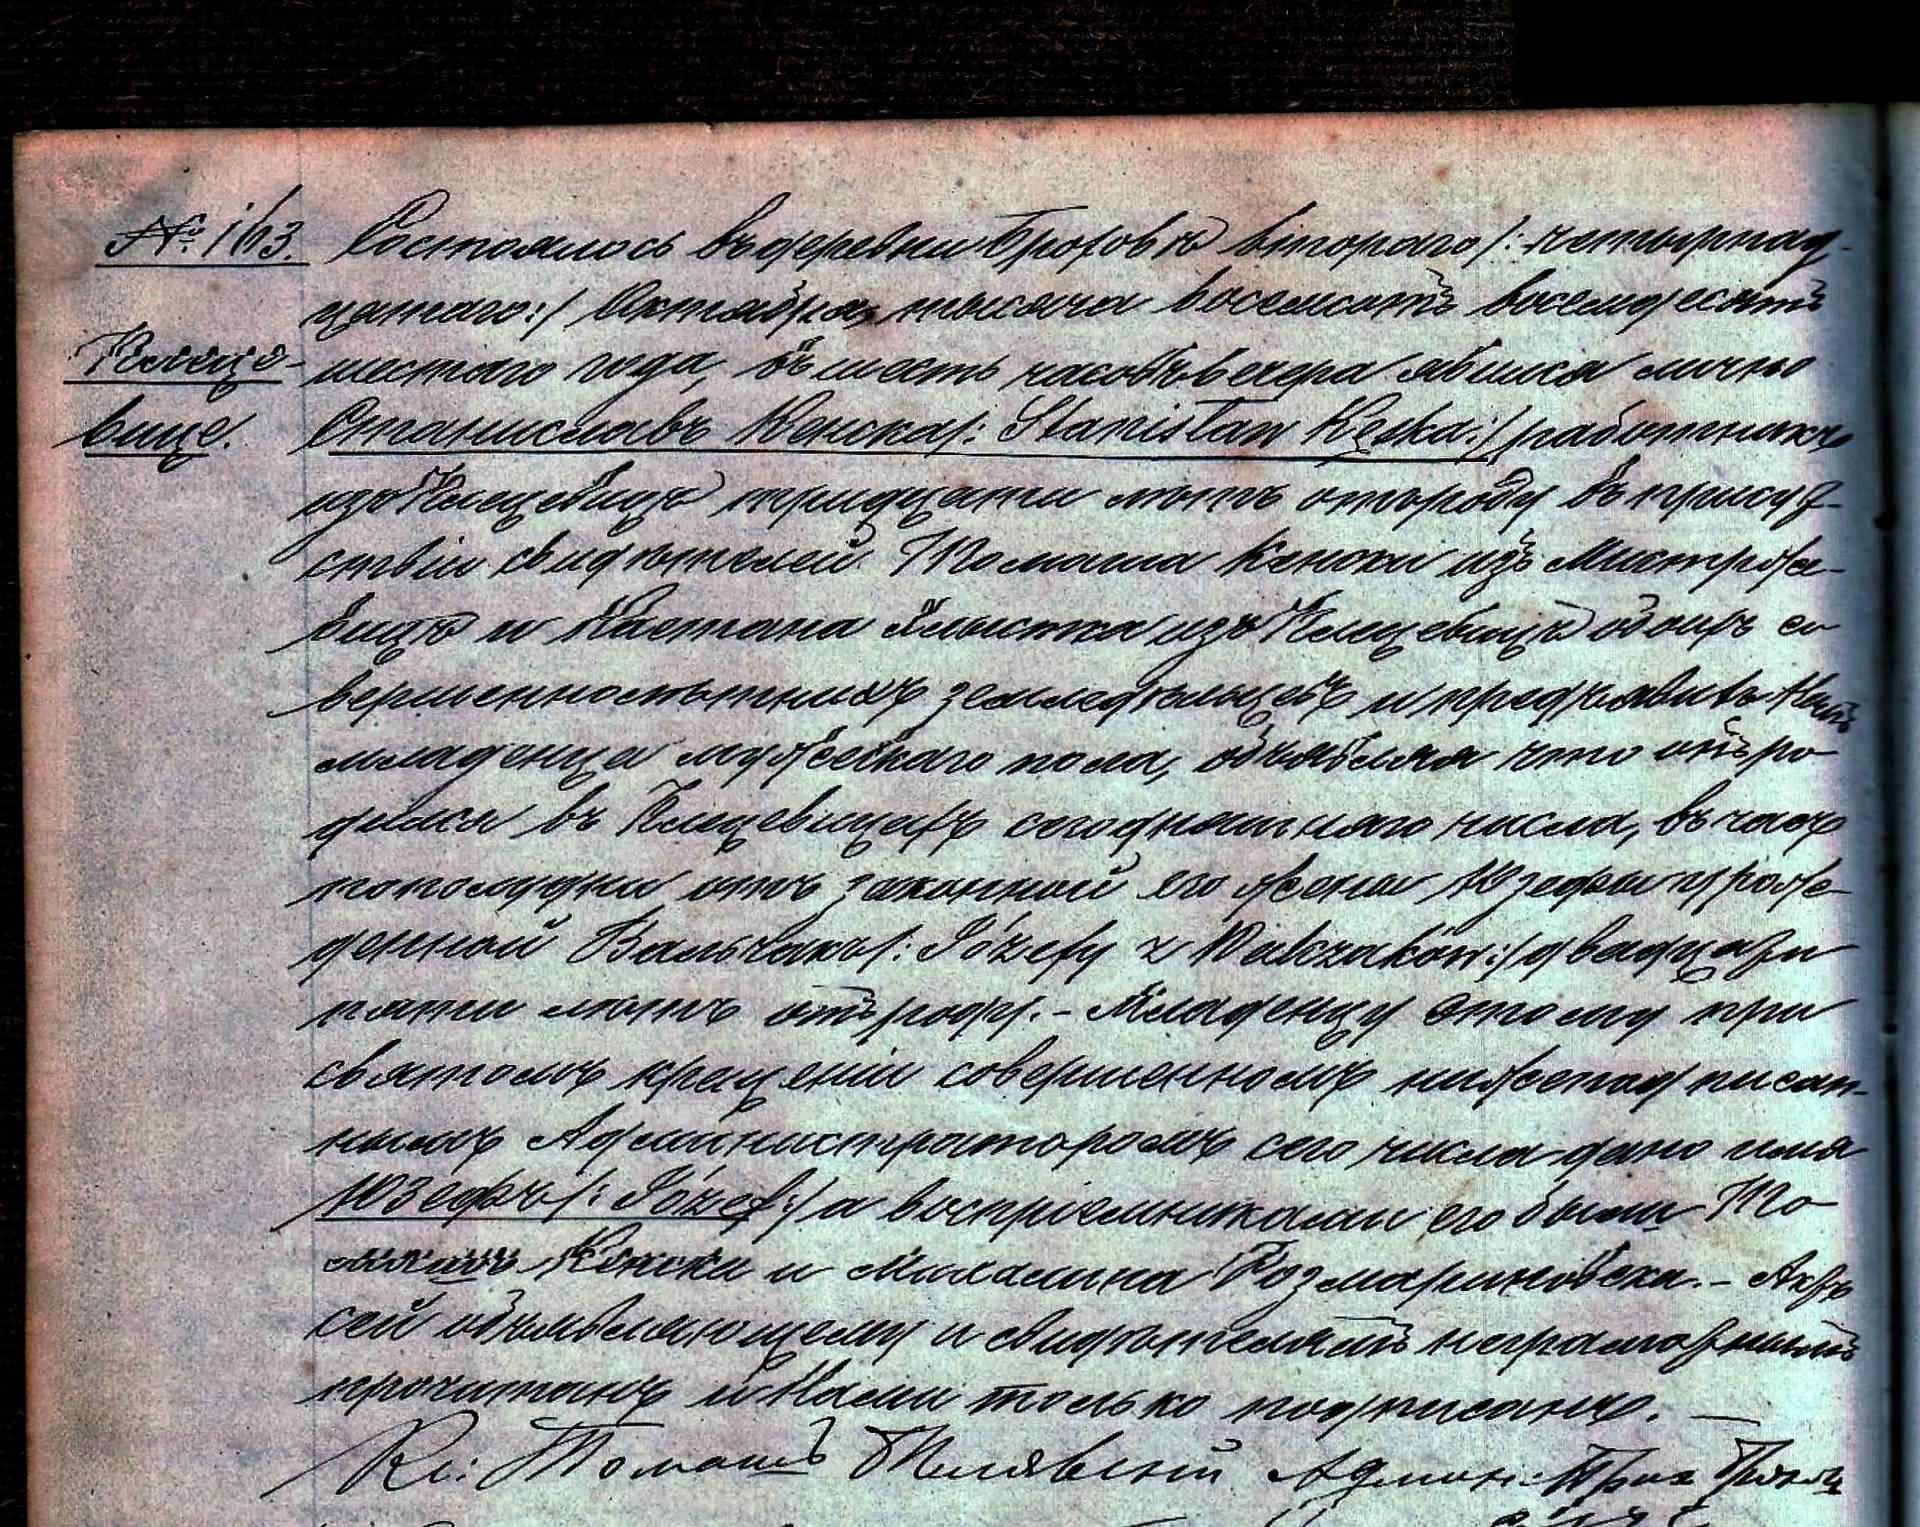 № 163. Состоялось въ деревни Броховѣ второго /: четырнад-
цатаго :/ Октября, тысяча восемьсотъ восемдесятъ
шестаго года, въ шесть часовъ вечера явился лично
Клеще-
вице.
Станиславъ Кенска /: Stanisław Kęska :/ работникъ
изъ Клещевицъ тридцати лѣтъ отъ роду въ присут-
ствіи свидѣтелей Томаша Кенски изъ Мистрже-
вицъ и изъ Клещевицъ обоихъ со
вершеннолѣтнихъ земледѣльцевъ и предъявилъ Намъ
младенца мужескаго пола, объявляя что онъ ро-
дился въ Клещевицахъ сегоднешняго числа, въ часъ
пополудни отъ законной его жены Юзефы урож-
денной Вальчакъ /: Józefy z Walczaków :/ двадцати
пяти лѣтъ отъ роду. - Младенцу этому при
святомъ крещеніи совершенномъ нижеподписан-
нымъ Администраторомъ сего числа дано имя
Юзефъ /: Józef :/ а воспріемниками его были То-
машъ Кенски и Михалина Розмариновска. - Актъ
сей объявляющему и свидѣтелямъ неграмотнымъ
прочитанъ и Нами только подписанъ. —
Кс: Томашъ Админ: